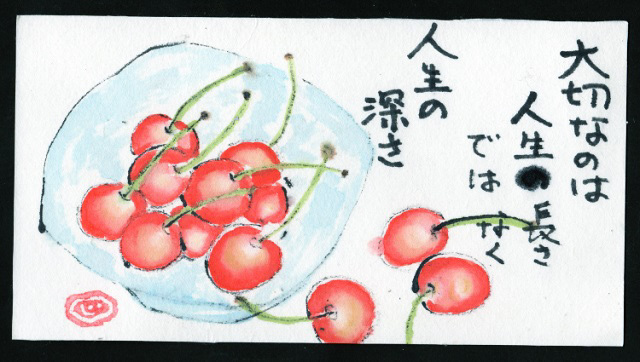 大切なのは
人生の長さ
では なく
人生の
深さ